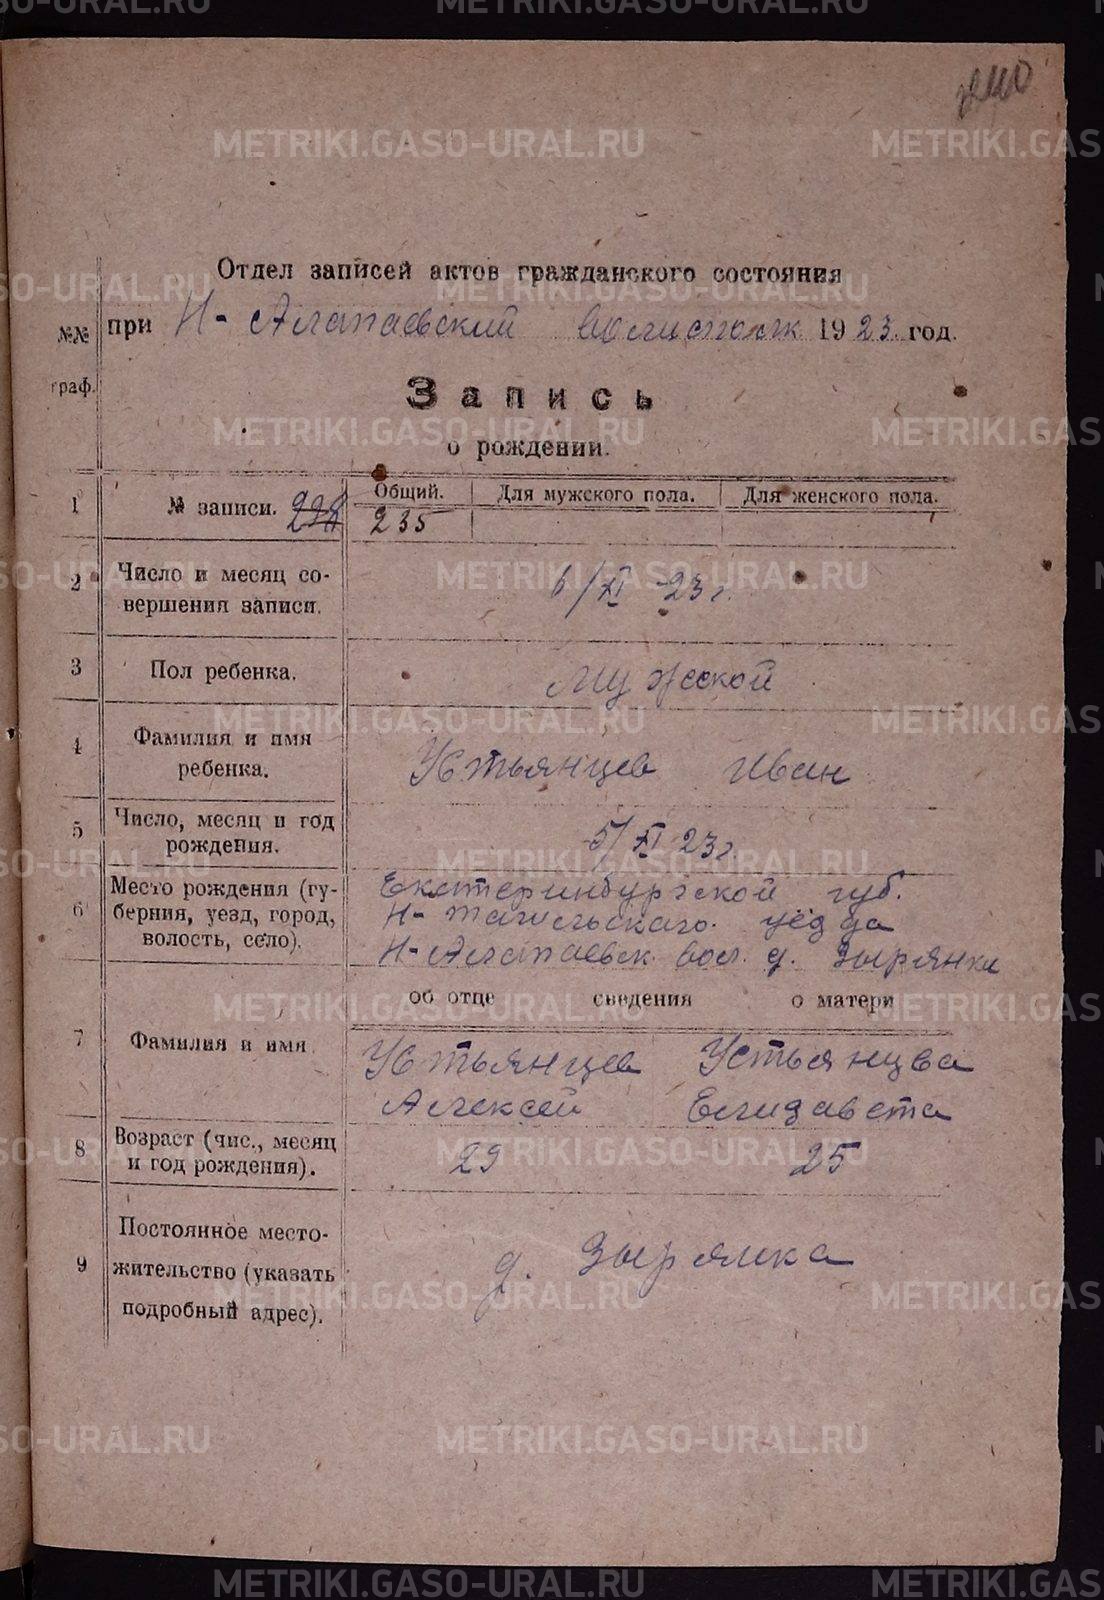 240
METRIKI.GASO-URAL.RU
Отдел записей актов гражданского состояния
№№ граф.
при Н-Алапаевский волисполк 1923 год.
Запись
о рождении.
1 № записи. 235
Общий. Для мужского пола. Для женского пола.
2 Число и месяц совершения записи. 6/XI-23 г.
3 Пол ребенка. Мужской
4 Фамилия и имя ребенка. Устьянцев Иван
5 Число, месяц и год рождения. 5/XI 23 г.
6 Место рождения (губерния, уезд, город, волость, село). Екатеринбургской губ.
Н-Тагильскаго уезда
Н-Алапаевск. вол. д. Зырянка
об отце сведения о матери
7 Фамилия и имя Устьянцев Устьянцва
Алексей Елизавета
8 Возраст (чис., месяц и год рождения). 29 25
9 Постоянное местожительство (указать подробный адрес). д. Зырянка